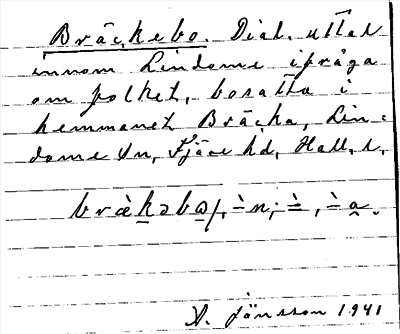 Bräckebo. Dial. uttal
innom Lindome ifråga
om folket, bosatta i
hemmanet Bräcka, Lin-
dome sn, Fjäre hd, Hall. l.
A. Jönsson 1941